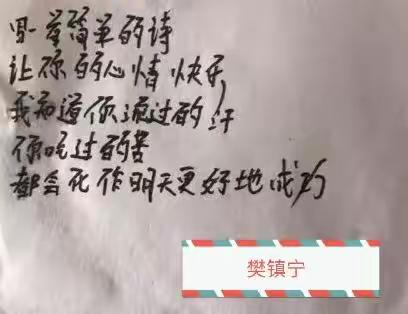 一首简单的诗
让你的心情快乐
我知道你流过的汗
你吃过的苦
都会死作明天更好地成功
樊镇宁